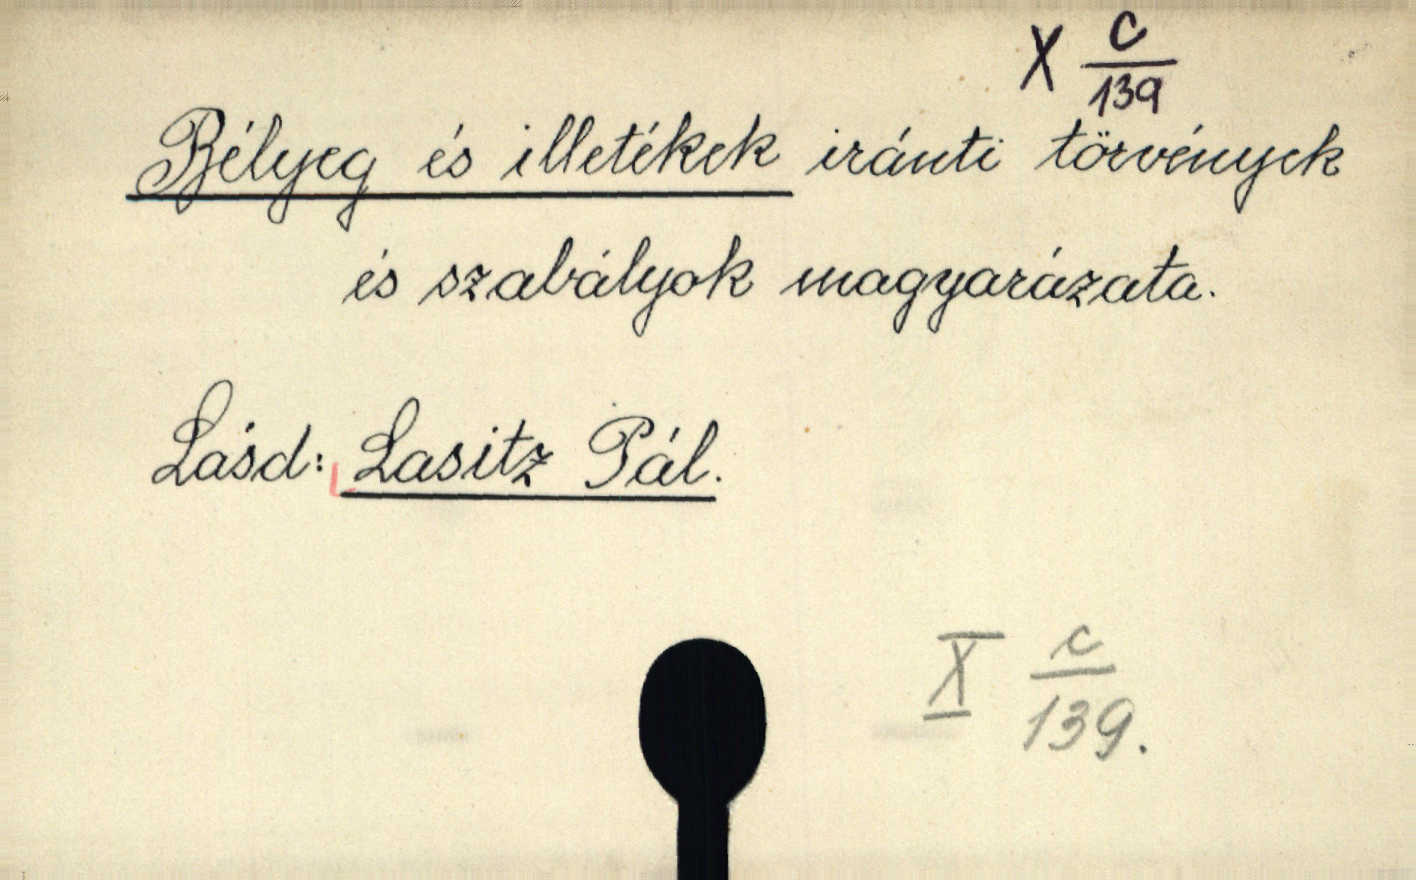 X c/139
Bélyeg és illetékek iránti törvények
és szabályok magyarázata.
Lásd: Lasitz Pál.
X c/139.